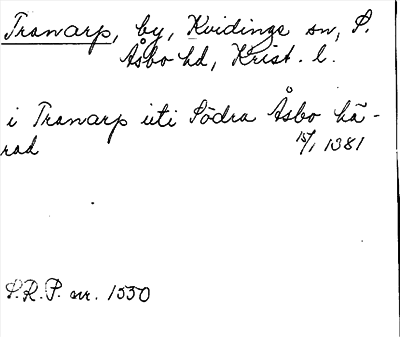 Tranarp, by, Kvidinge sn, S.
Åsbo hd, Krist. l.
i Tranarp uti Södra Åsbo hä-
rad 15/1 1381
S.R.P. nr. 1550